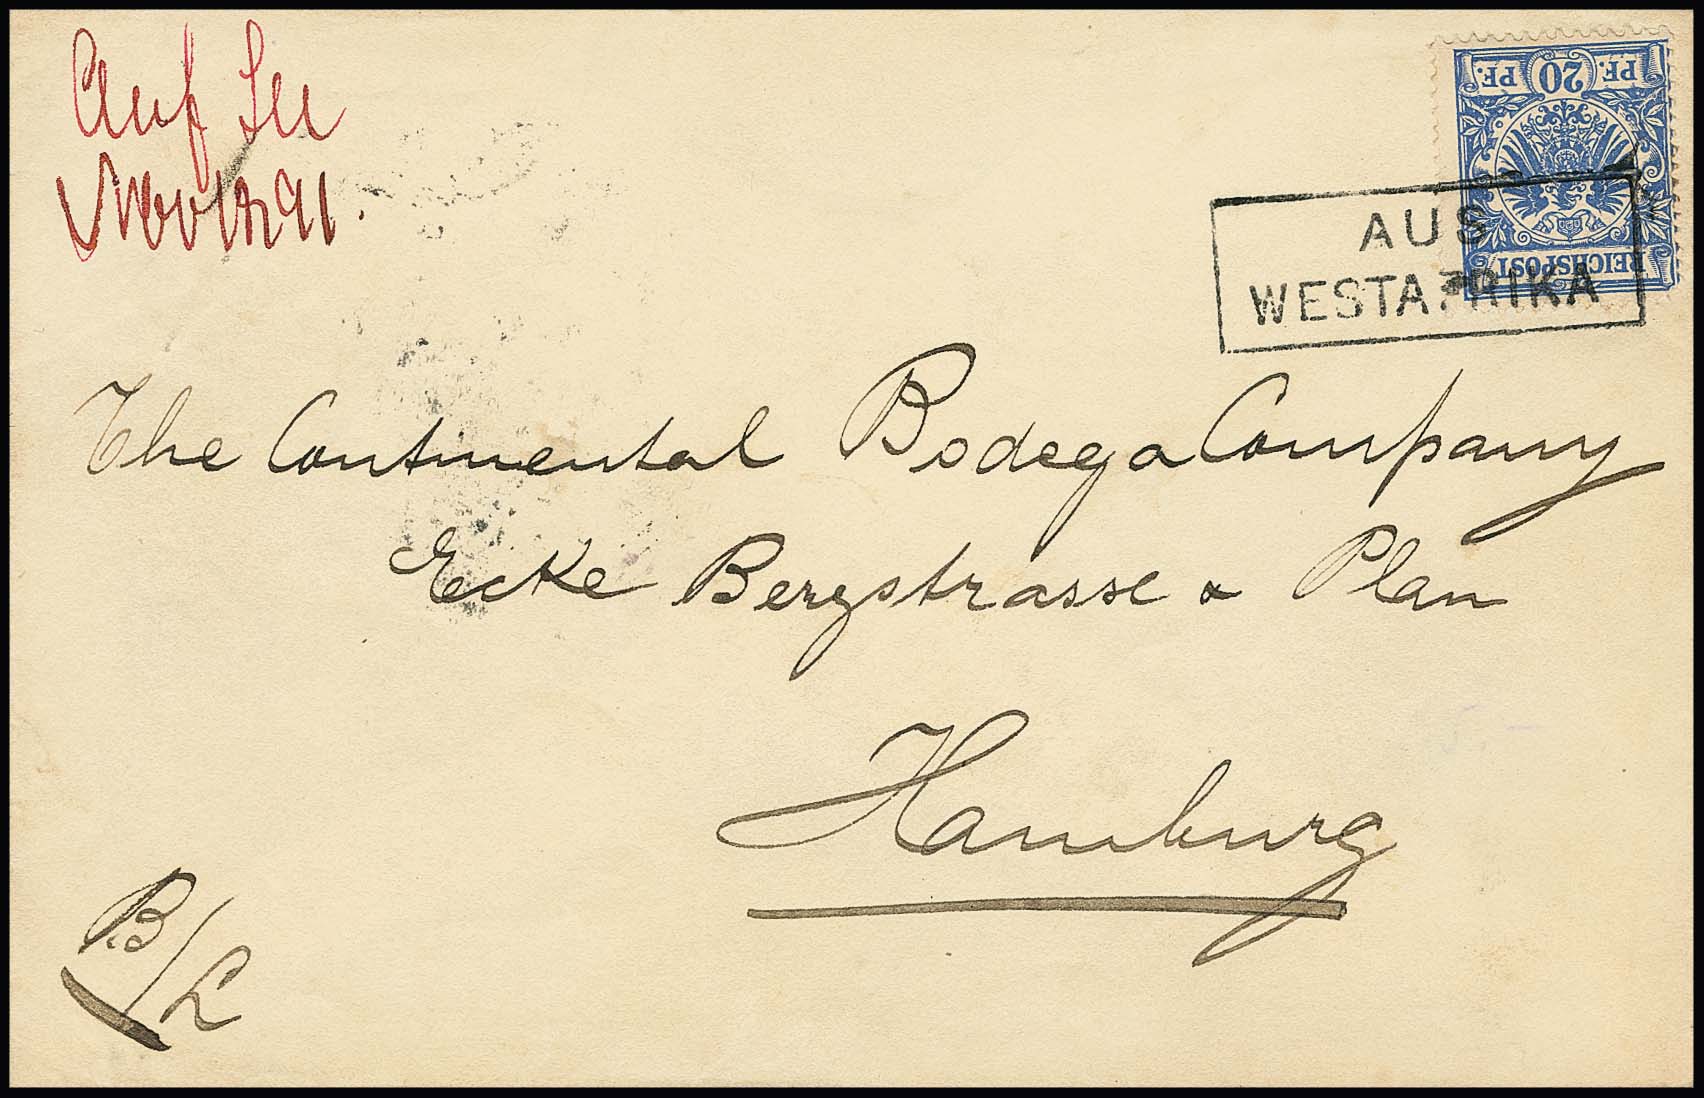 Auf See
Nov 12 91.
PF. 20 PF.
REICHSPOST
AUS
WESTAFRIKA
The Continental Bodega Company
Ecke Bergstrasse & Plan
Hamburg
B/L